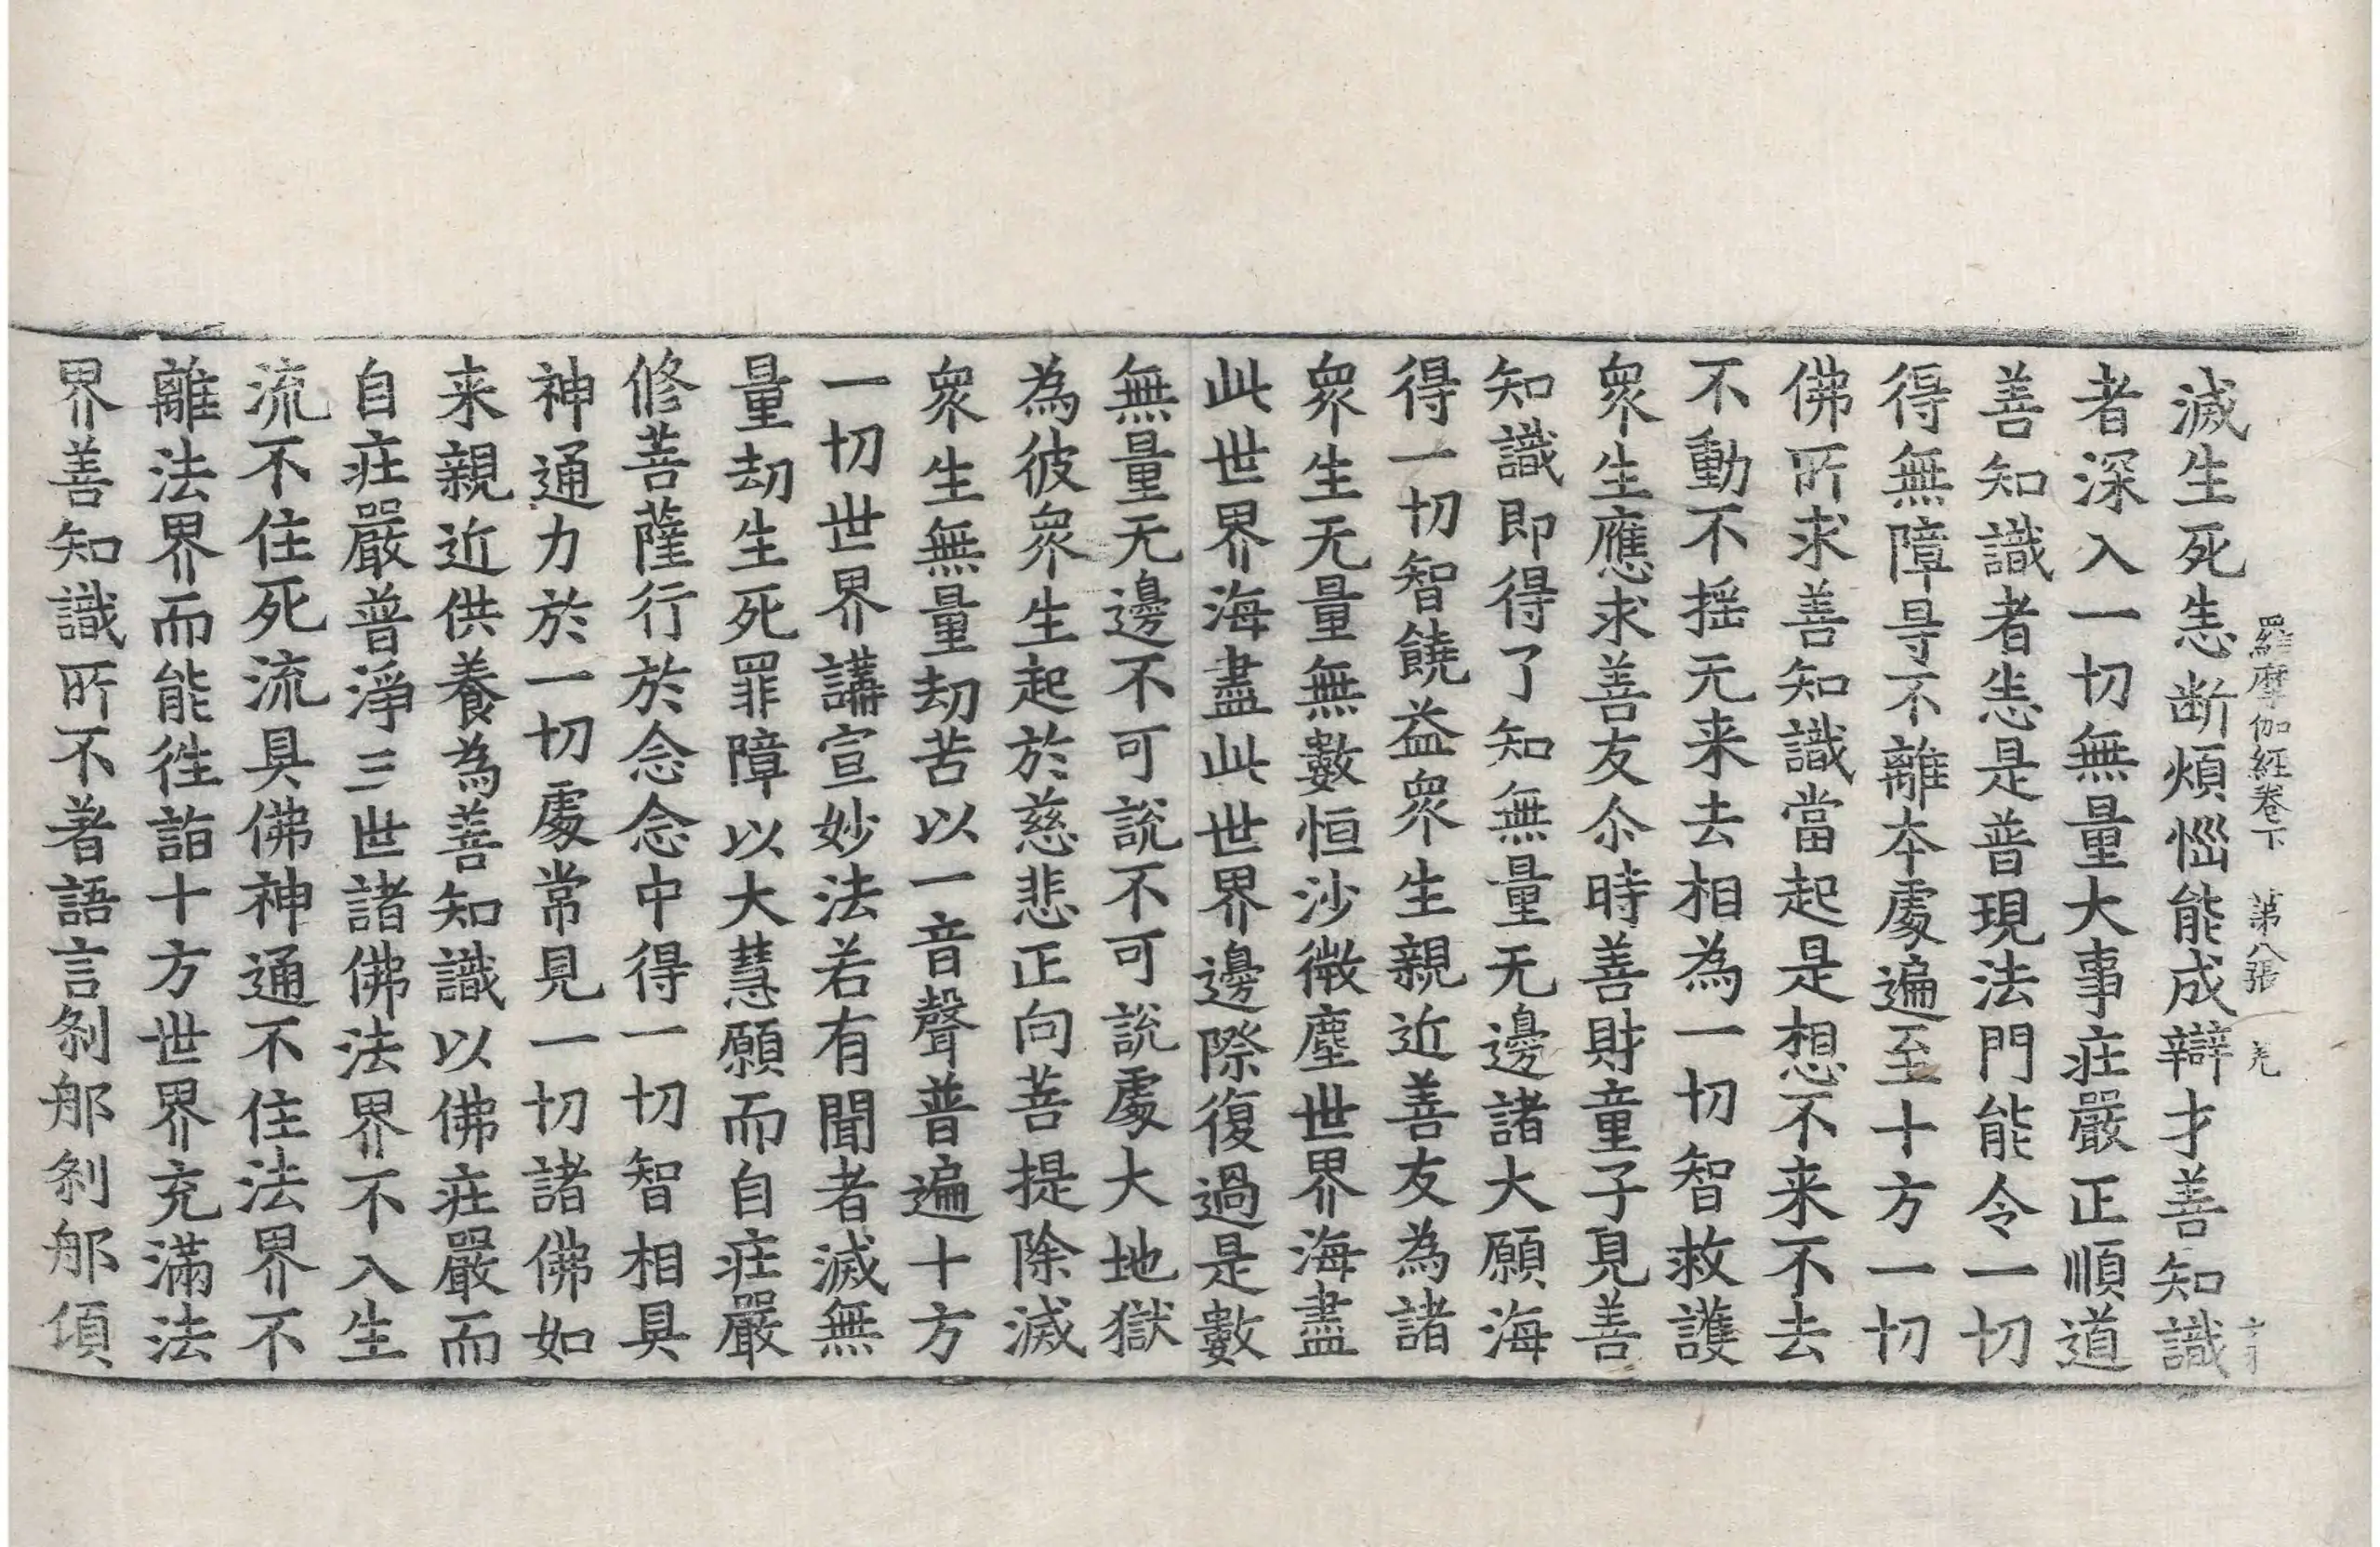 羅摩伽經卷下 第八張 羌
滅生死恙断煩惱能成辯才善知識
者深入一切無量大事莊嚴正順道
善知識者恙是普現法門能令一切
得無障㝵不離夲處遍至十方一切
佛所求善知識當起是想不来不去
不動不揺无来去相為一切智救護
衆生應求善友尒時善財童子見善
知識即得了知無量无邊諸大願海
得一切智饒益衆生親近善友為諸
衆生无量無數恒沙微塵世界海盡
此世界海盡此世界邊際復過是數
無量无邊不可說不可說處大地獄
為彼衆生起於慈悲正向菩提除滅
衆生無量劫苦以一音聲普遍十方
一切世界講宣妙法若有聞者滅無
量劫生死罪障以大慧願而自莊嚴
修菩薩行於念念中得一切智相具
神通力於一切處常見一切諸佛如
来親近供養為善知識以佛莊嚴而
自莊嚴普淨三世諸佛法界不入生
流不住死流具佛神通不住法界不
離法界而能徃詣十方世界充滿法
界善知識所不著語言刹那刹那傾